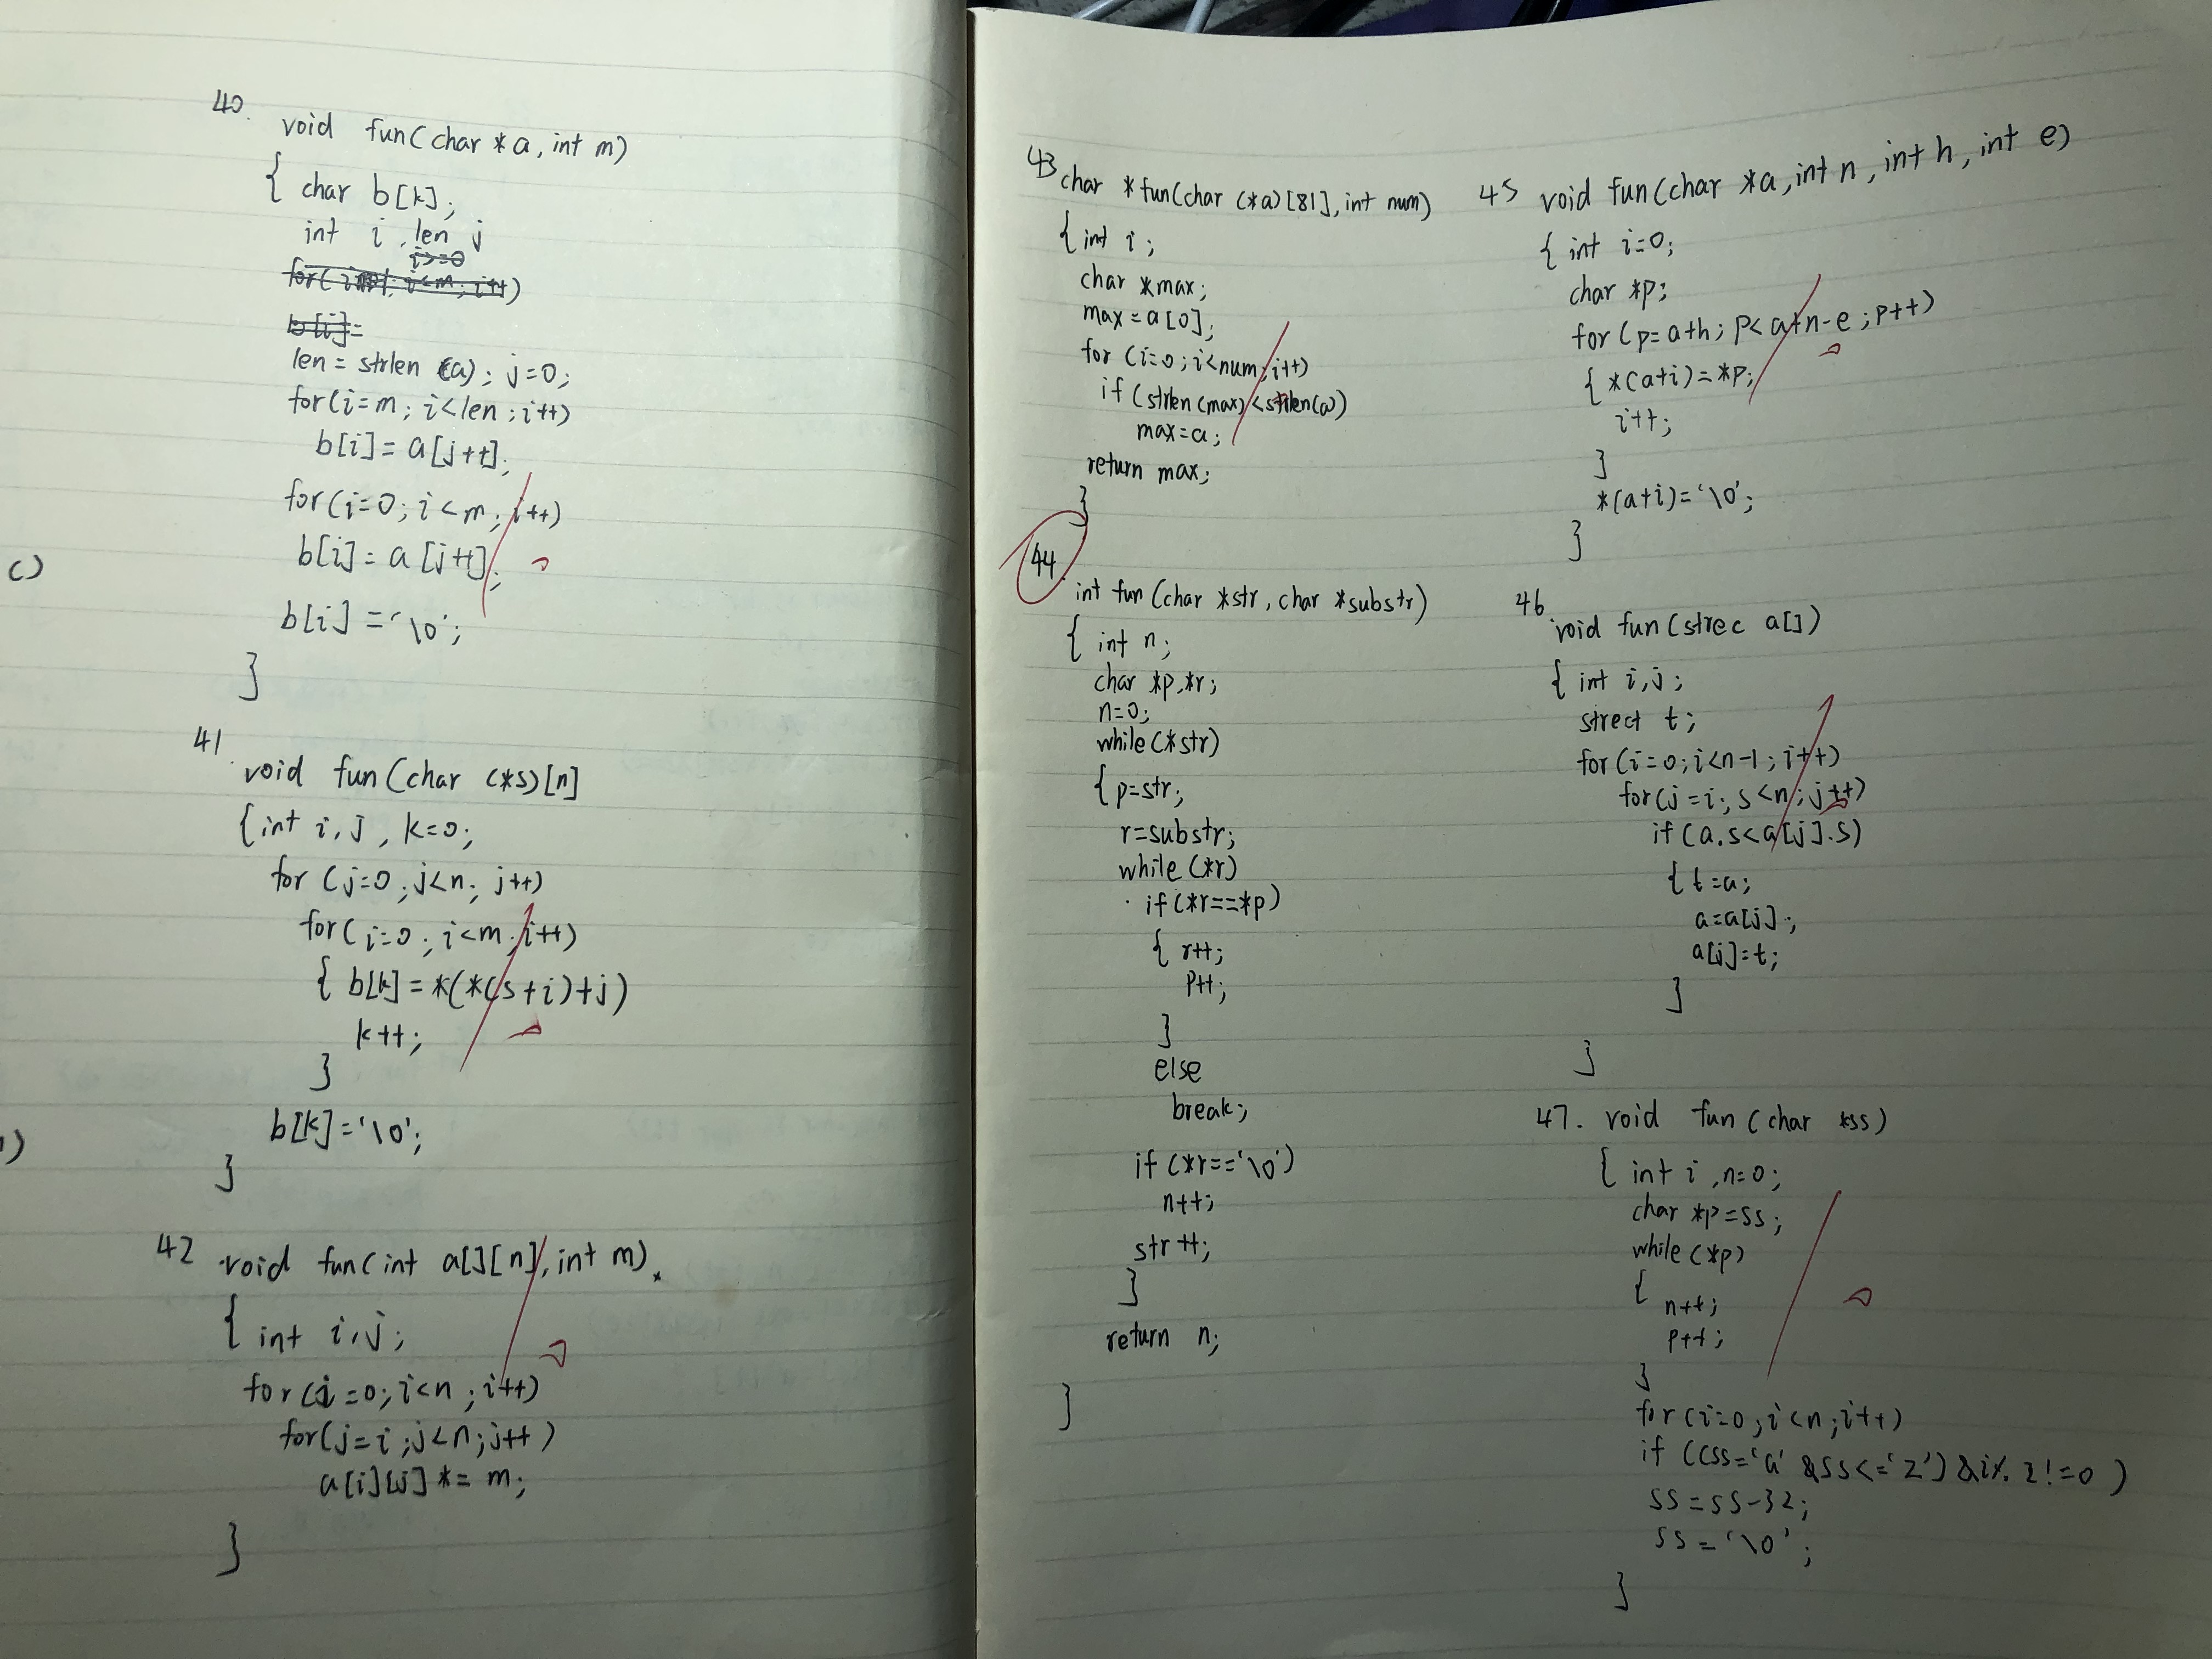 40.
void fun(char *a, int m)
{ char b[k];
int i, len j
len = strlen (a); j=0;
for(i=m; i<len; i++)
b[i]= a[j++];
for(i=0; i<m; i++)
b[i]= a[j++];
b[i]='\0';
}
c)
41.
void fun(char (*s)[n]
{int i, j, k=0;
for (j=0; j<n; j++)
for(i=0; i<m; i++)
{ b[k] = *(*(s+i)+j)
k++;
}
b[k]='\0';
}
)
42 void fun(int a[][n], int m).
{ int i,j;
for(i=0; i<n; i++)
for(j=i; j<n; j++)
a[i][j] *= m;
}
43 char *fun(char (*a)[81], int num)
{int i;
char *max;
max=a[0];
for (i=0; i<num; i++)
if (strlen(max)<strlen(a))
max=a;
return max;
}
44
int fun (char *str, char *substr)
{ int n;
char *p,*r;
n=0;
while(*str)
{p=str;
r=substr;
while (*r)
if(*r==*p)
{ r++;
p++;
}
else
break;
if (*r=='\0')
n++;
str++;
}
return n;
}
45 void fun(char *a, int n, int h, int e)
{ int i=0;
char *p;
for (p=a+h; p<a+n-e; p++)
{ *(a+i)=*p;
i++;
}
*(a+i)='\0';
}
46
void fun(strec a[])
{ int i,j;
strect t;
for(i=0; i<n-1; i++)
for(j=i; s<n; j++)
if (a.s<a[j].s)
{ t=a;
a=a[j];
a[j]=t;
}
}
47. void fun (char *ss)
{ int i, n=0;
char *p=ss;
while(*p)
{
n++;
p++;
}
for(i=0; i<n; i++)
if ((ss='a' &ss<='z') &i%2!=0)
ss=ss-32;
ss='\0';
}